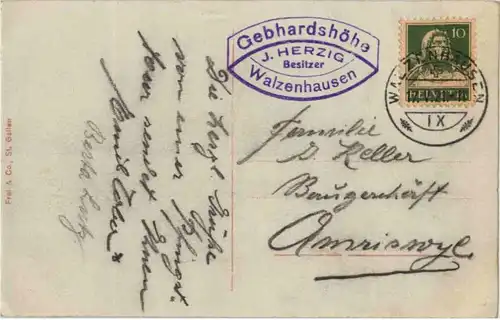 Gebhardshöhe
J. HERZIG
Besitzer
Walzenhausen
10
HELVETIA
WALZENHAUSEN
IX
Familie
Keller
Baugeschäft
Amriswyl.
Die herzl. Grüße
von einer
sendet Ihnen
Emil
Berta Lutz
Frei & Co., St. Gallen